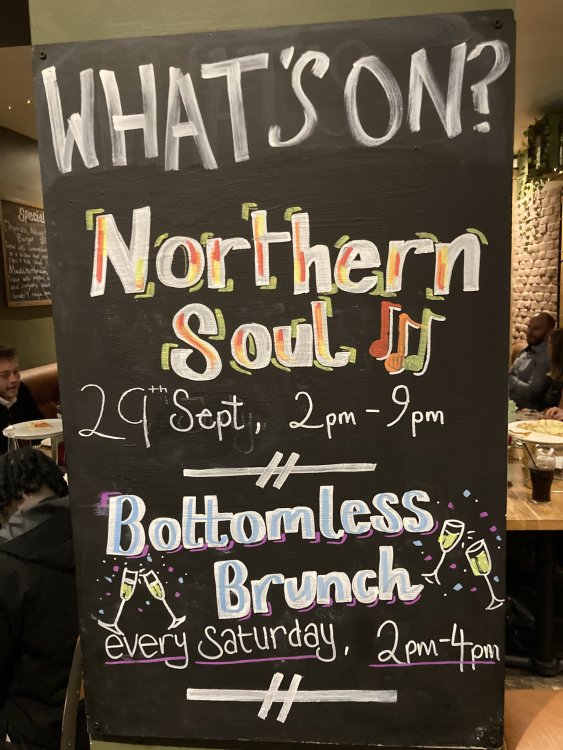 WHAT'S ON?
Northern
Soul
29th Sept, 2pm - 9pm
Bottomless
Brunch
every Saturday, 2pm-4pm
Special
Burger